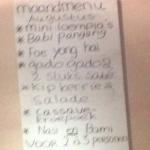 maandmenu
Augustus
* mini loempia's
* Babi pangang
* Foe yong hai
* gado gado &
2 stuks saté
* Kip kerrie &
salade
* cassave-
kroepoek
* Nasi en Bami
voor 2 à 3 personen